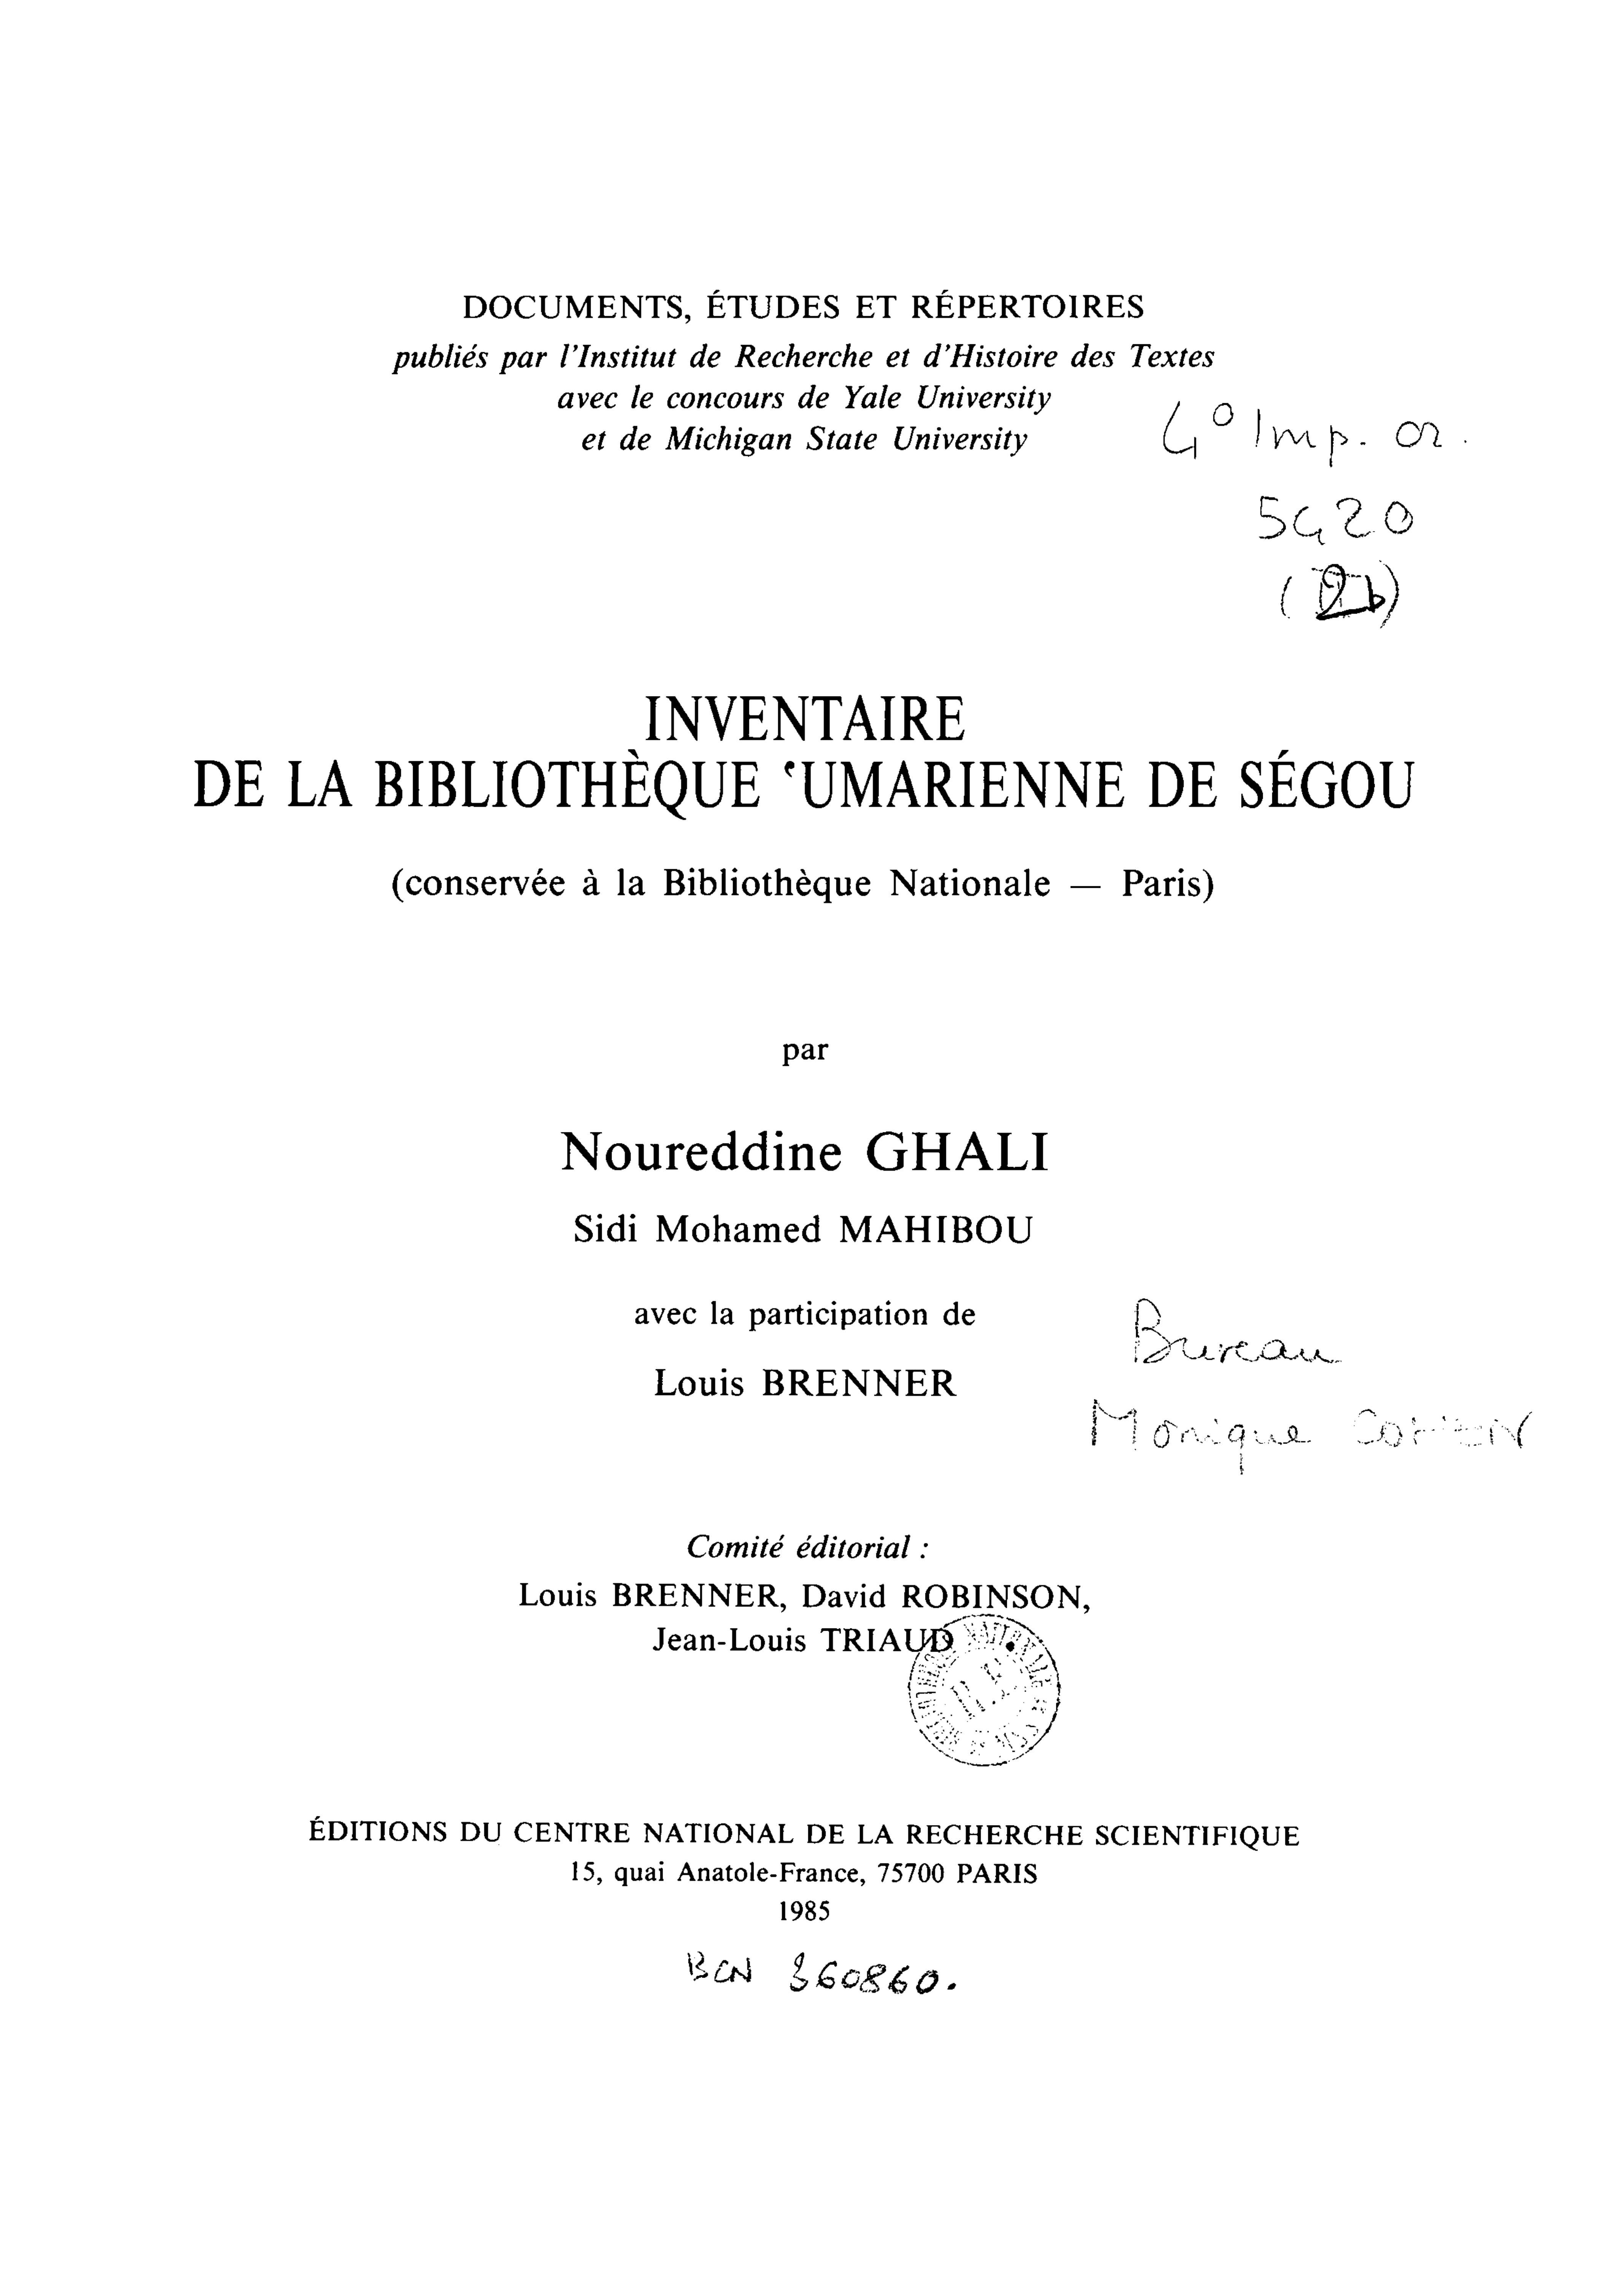 DOCUMENTS, ÉTUDES ET RÉPERTOIRES
publiés par l'Institut de Recherche et d'Histoire des Textes
avec le concours de Yale University
et de Michigan State University
4° Imp. or.
5420
INVENTAIRE
DE LA BIBLIOTHÈQUE ʿUMARIENNE DE SÉGOU
(conservée à la Bibliothèque Nationale — Paris)
par
Noureddine GHALI
Sidi Mohamed MAHIBOU
avec la participation de
Louis BRENNER
Bureau
Monique COHEN
Comité éditorial :
Louis BRENNER, David ROBINSON,
Jean-Louis TRIAUD
ÉDITIONS DU CENTRE NATIONAL DE LA RECHERCHE SCIENTIFIQUE
15, quai Anatole-France, 75700 PARIS
1985
BCN 360860.